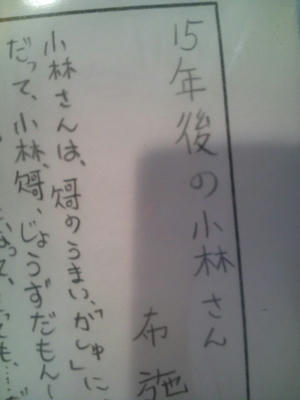 15年後の小林さん
布施
小林さんは、歌のうまい、「かしゅ」に
だって、小林、歌、じょうずだもん〜